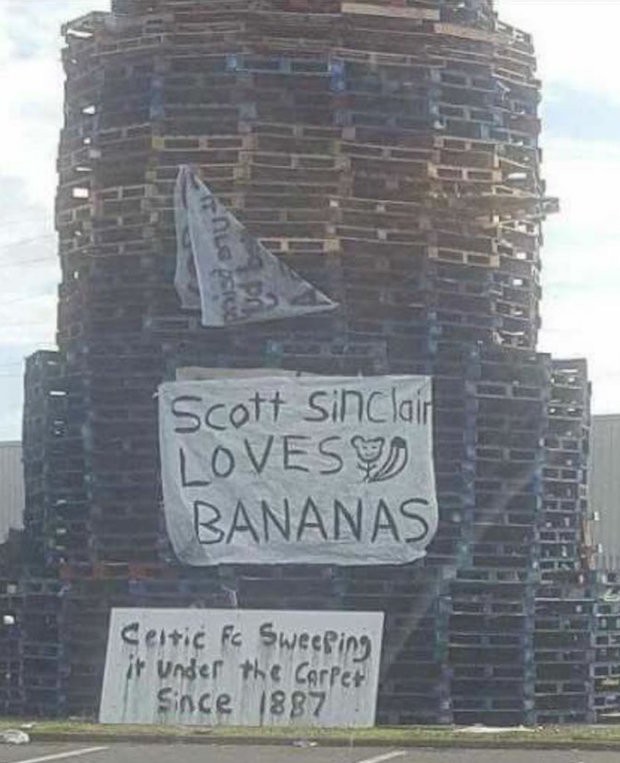 Scott Sinclair
LOVES
BANANAS
Celtic Fc Sweeping
it under the Carpet
Since 1887